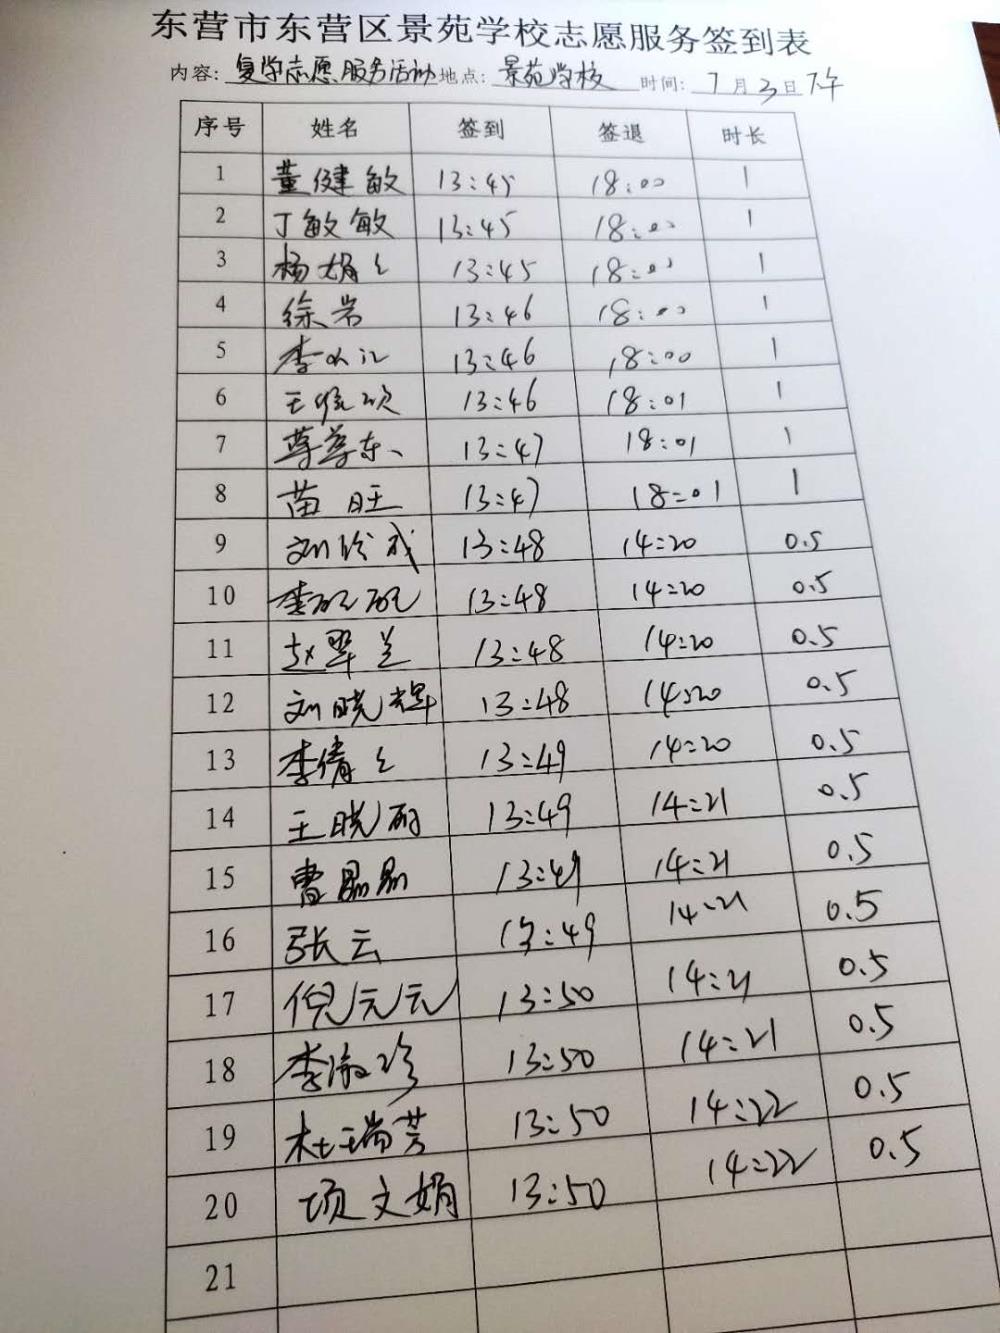 东营市东营区景苑学校志愿服务签到表
内容: 复学志愿服务活动 地点: 景苑学校 时间: 7月3日下午
序号 姓名 签到 签退 时长
1 董健敏 13:45 18:00 1
2 丁敏敏 13:45 18:00 1
3 杨娟娟 13:45 18:01 1
4 徐岩 13:46 18:00 1
5 李 13:46 18:00 1
6 王 13:46 18:01 1
7 13:47 18:01 1
8 苗旺 13:47 18:01 1
9 刘 13:48 14:20 0.5
10 李 13:48 14:20 0.5
11 赵翠兰 13:48 14:20 0.5
12 刘晓辉 13:48 14:20 0.5
13 李倩倩 13:49 14:20 0.5
14 王晓丽 13:49 14:21 0.5
15 曹晶晶 13:49 14:21 0.5
16 张云 13:49 14:21 0.5
17 倪元元 13:50 14:21 0.5
18 李淑珍 13:50 14:21 0.5
19 杜瑞芳 13:50 14:22 0.5
20 项文娟 13:50 14:22 0.5
21